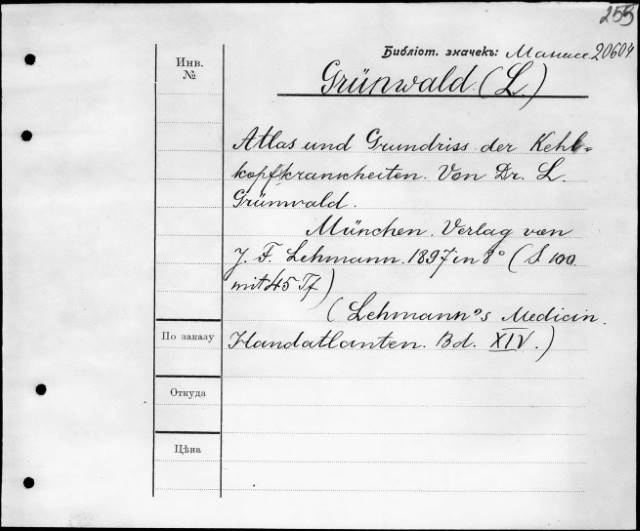 255
Библіот. значекъ: Манасе. 20604
Инв.
№
Grünwald. (L.)
Atlas und Grundriss der Kehl-
kopfkrankheiten. Von Dr. L.
Grünwald.
München. Verlag von
J. F. Lehmann. 1897 in 8° (S 100.
mit 45 Tf)
(Lehmann's Medicin.
По заказу
Handatlanten. Bd. XIV.)
Откуда
Цѣна